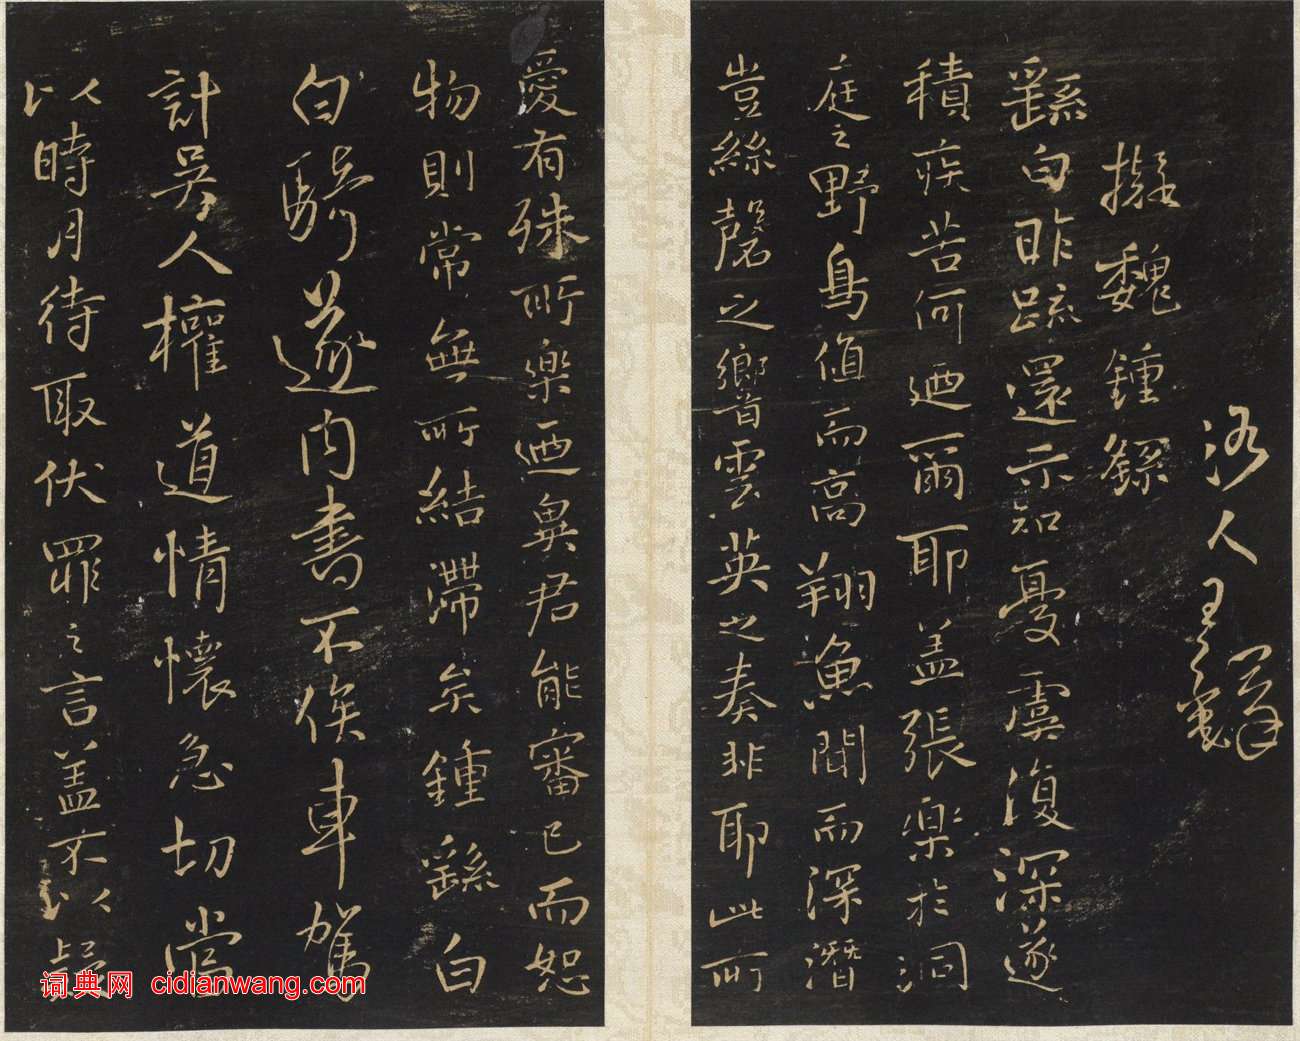 洛人王鐸
擬魏鍾繇
繇白昨疏還示知憂虞復深遂
積疾苦何迺爾耶盖張樂於洞
庭之野鳥值而高翔漁聞而深潛
豈絲磬之響雲英之奏非耶此所
愛有殊所樂迺異君能審己而恕
物則常無所結滯矣鍾繇白
白騎遂內書不俟車駕
計吳人權道情懷急切當
以時月待取伏罪之言盖不以疑
词典网 cidianwang.com